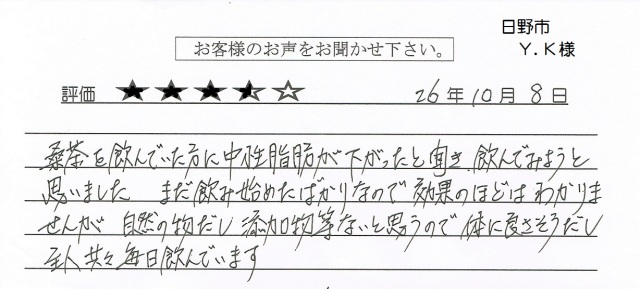 日野市
Y.K様
お客様のお声をお聞かせ下さい。
評価 ★★★★☆ 26年10月8日
桑茶を飲んでいた方に中性脂肪が下がったと聞き 飲んでみようと
思いました まだ飲み始めたばかりなので 効果のほどは わかりま
せんが 自然の物だし 添加物等ないと思うので 体に良さそうだし
主人共々 毎日飲んでいます